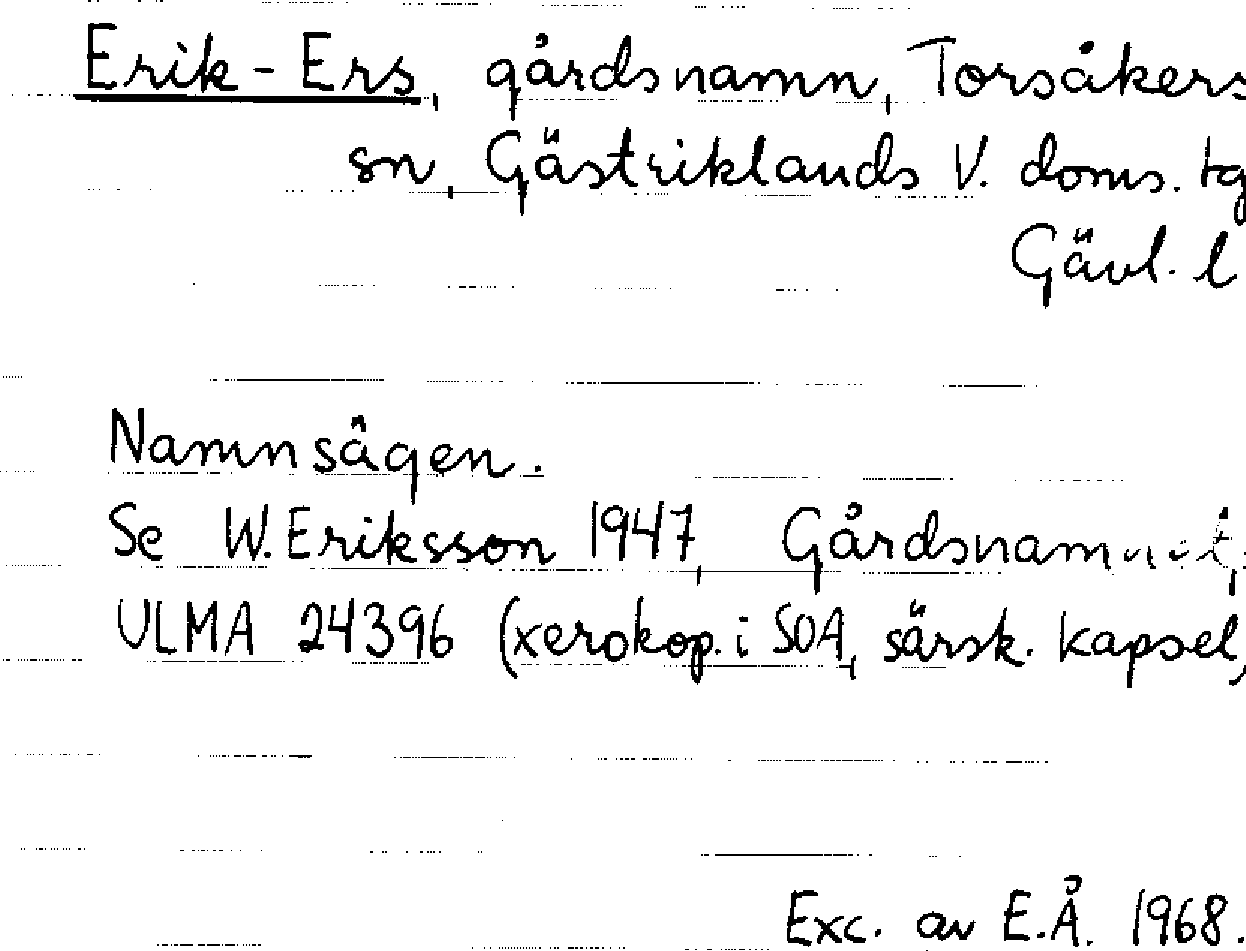 Erik-Ers, gårdsnamn, Torsåkers
sn, Gästriklands V. doms. tg
Gävl. l
Namnsägen.
Se W. Eriksson 1947, Gårdsnamnet,
ULMA 24396 (xerokop. i SOA, särsk. kapsel,
Exc. av E.Å. 1968.